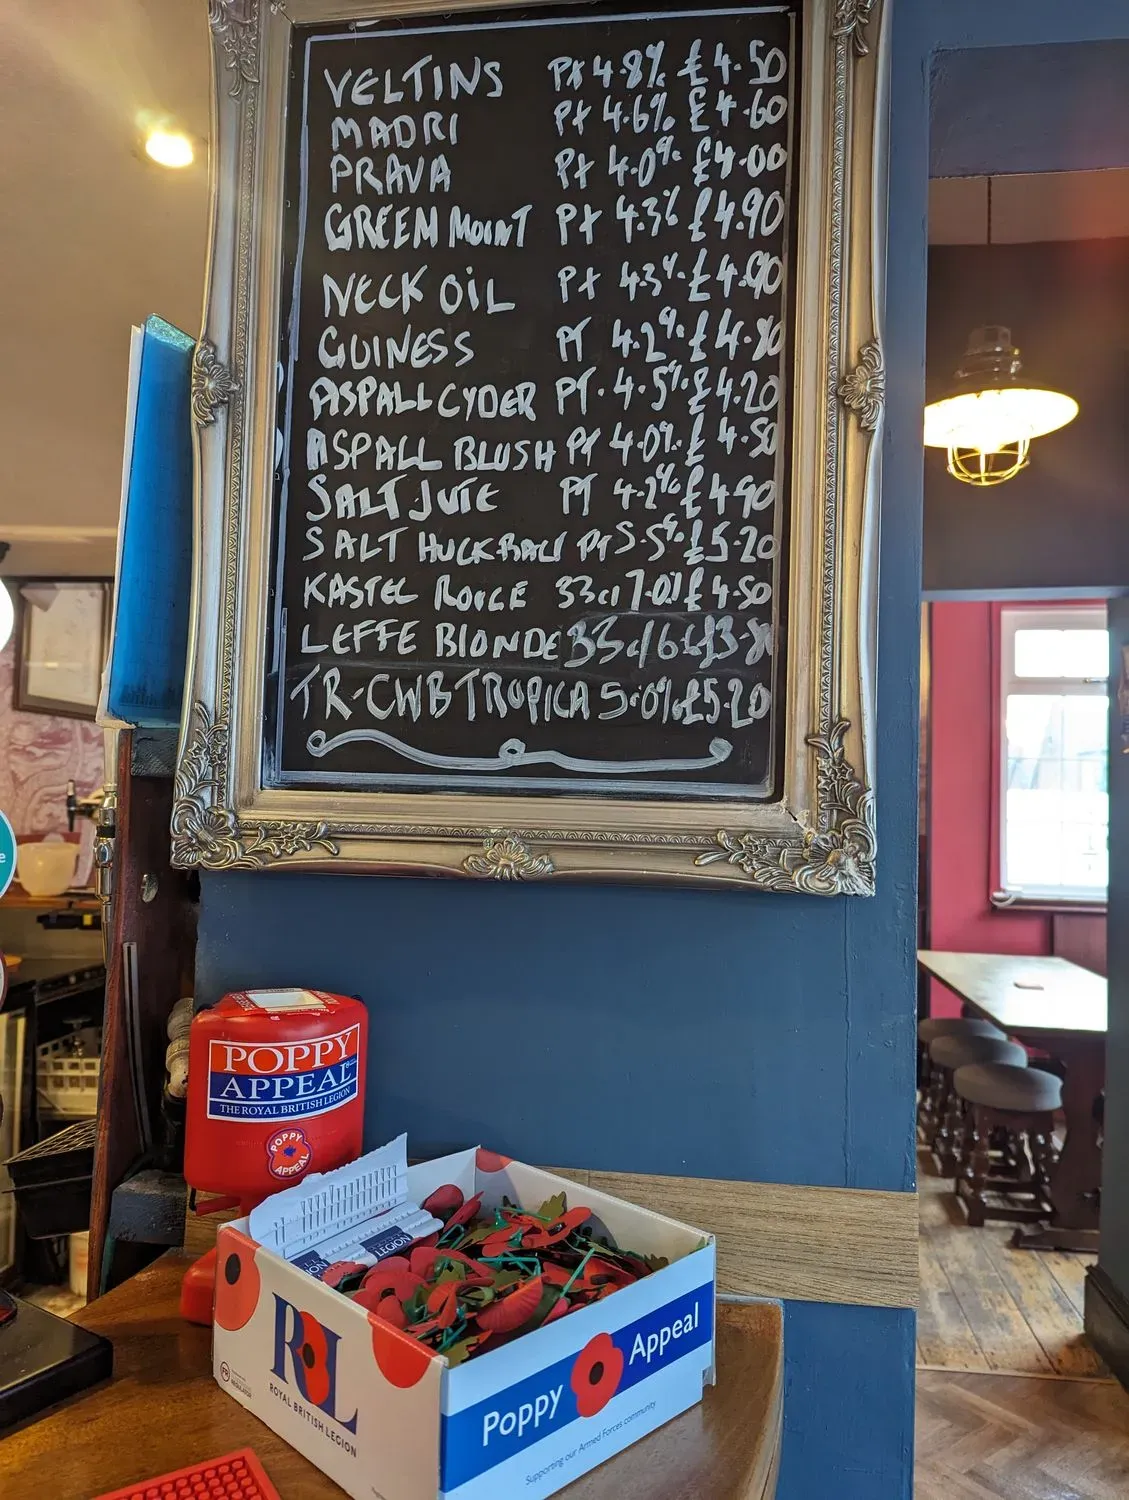 VELTINS PT 4.8% £4.50
MADRI PT 4.6% £4.60
PRAVA PT 4.0% £4.00
GREEN MOUNT PT 4.3% £4.90
NECK OIL PT 4.3% £4.90
GUINESS PT 4.2% £4.80
ASPALL CYDER PT. 4.5% £4.20
ASPALL BLUSH PT 4.0% £4.50
SALT JUTE PT 4.2% £4.90
SALT HUCKBALY PT 5.5% £5.20
KASTEL ROUGE 33cl 7.0% £4.50
LEFFE BLONDE 33cl £3.80
TR-CWB TROPICA 5.0% £5.20
POPPY
APPEAL
THE ROYAL BRITISH LEGION
POPPY
APPEAL
LEGION
RBL
ROYAL BRITISH LEGION
Poppy Appeal
Supporting our Armed Forces community